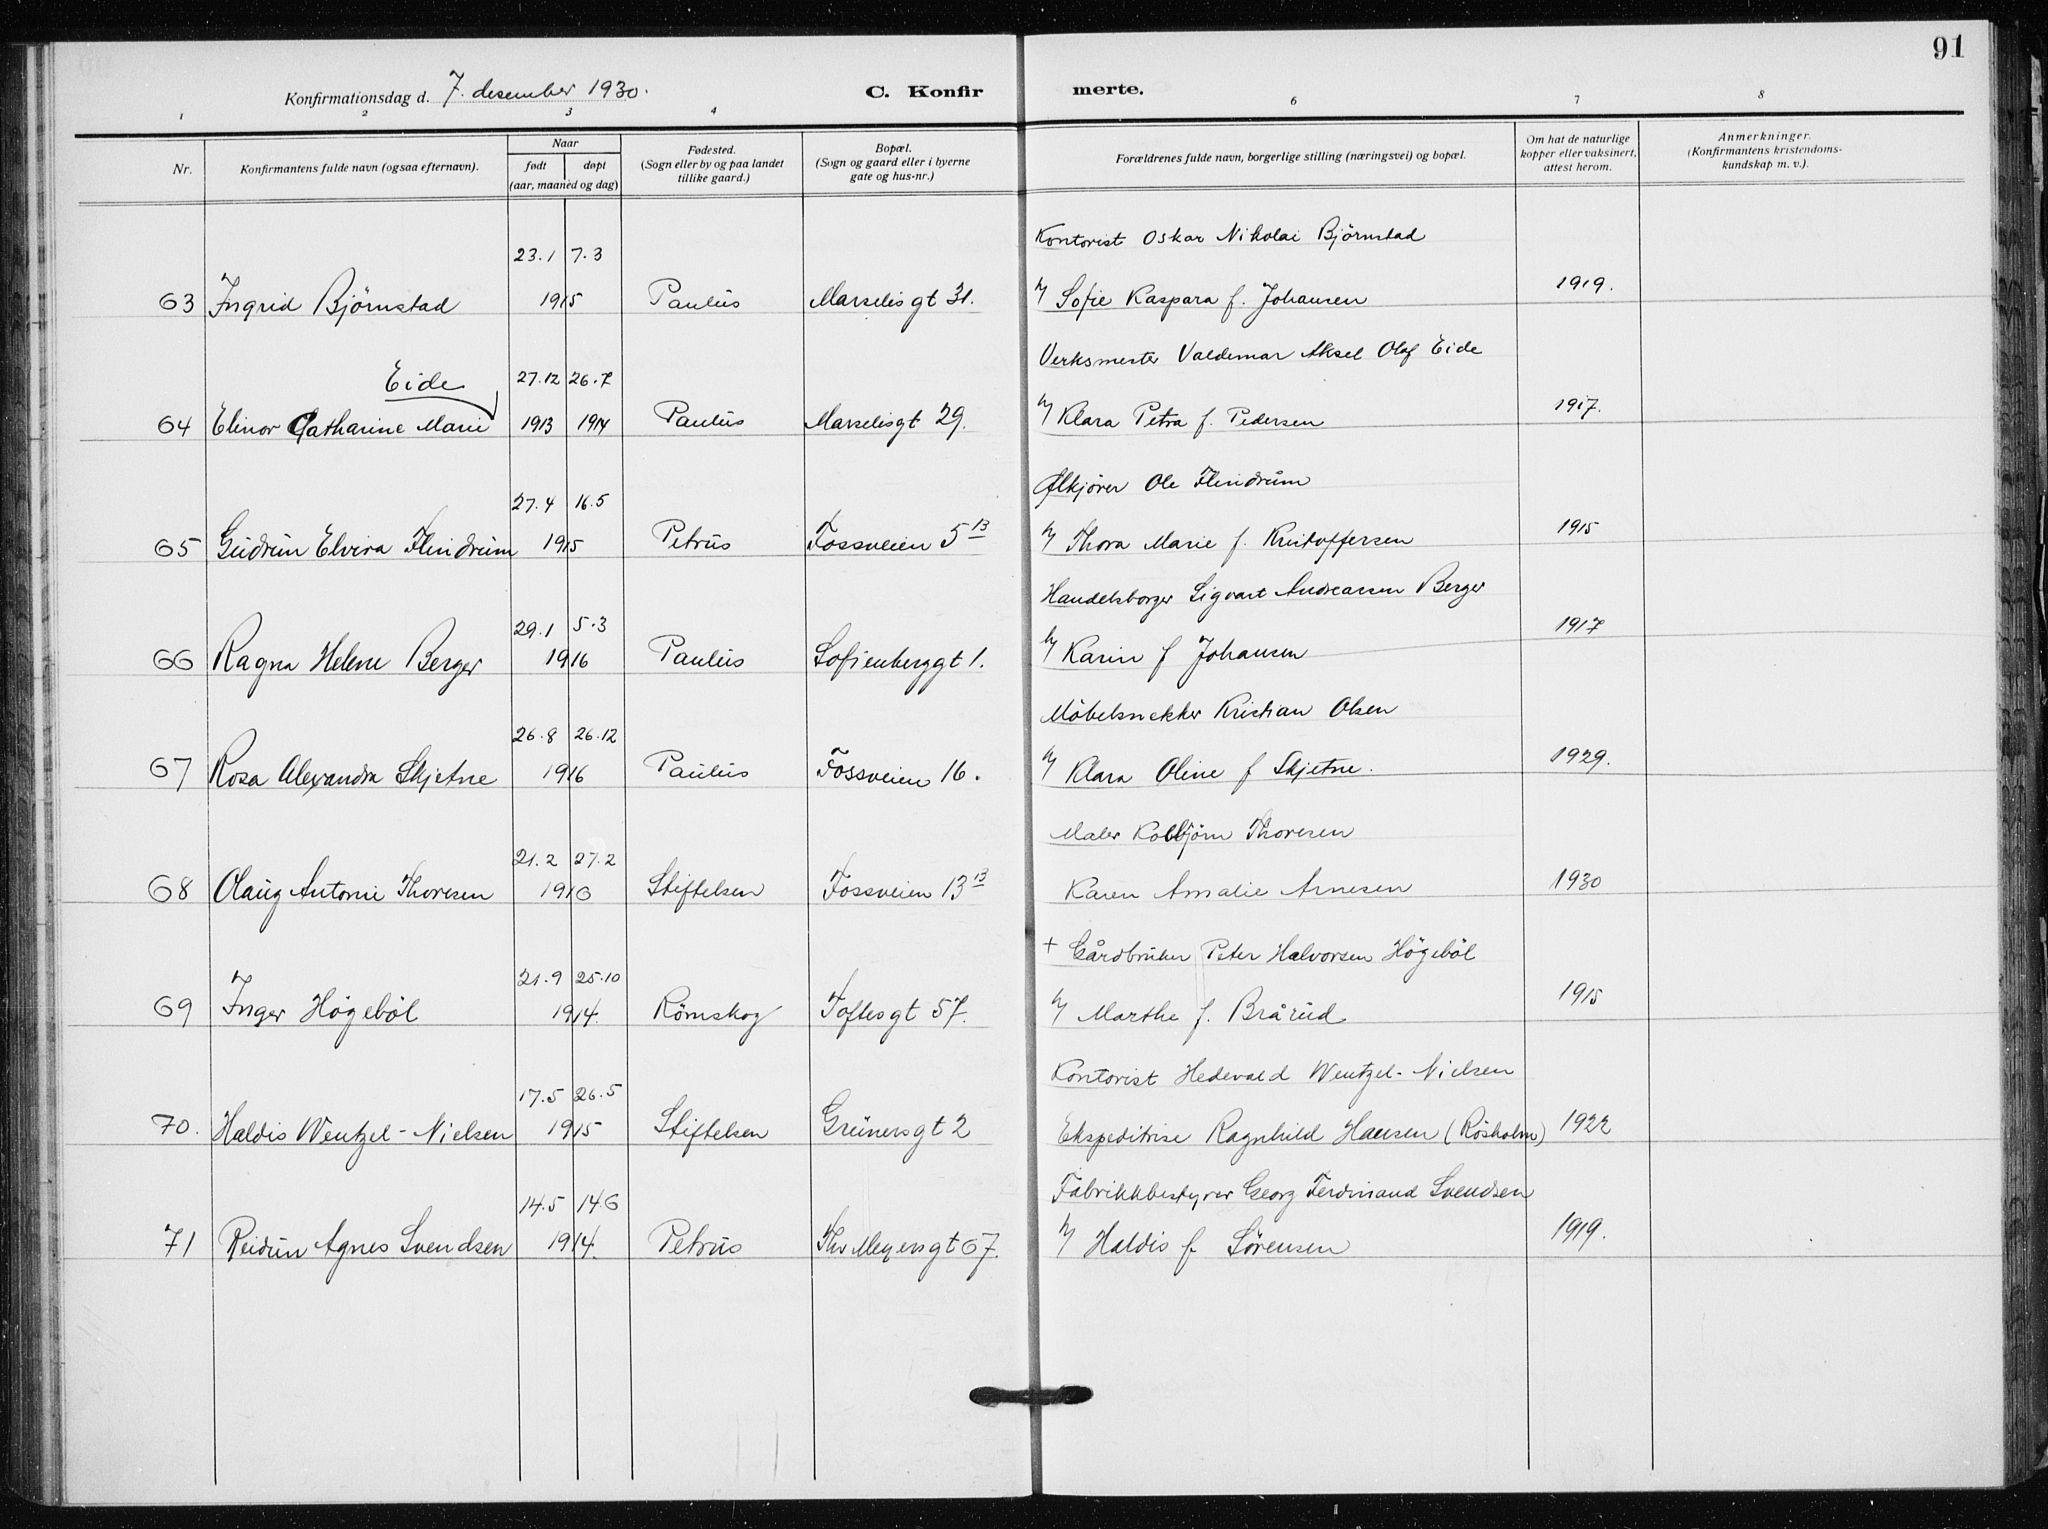 91
Konfirmationsdag d. 7. desember 1930. C. Konfirmerte.
1 2 3 4 6 7 8
Nr. Konfirmantens fulde navn (ogsaa efternavn). Naar født døpt (aar, maaned og dag) Fødested. (Sogn eller by og paa landet tillike gaard.) Bopæl. (Sogn og gaard eller i byerne gate og hus-nr.) Forældrenes fulde navn, borgerlige stilling (næringsvei) og bopæl. Om hat de naturlige kopper eller vaksinert, attest herom. Anmerkninger. (Konfirmantens kristendomskundskap m. v.).
23.1 7.3 Kontorist Oskar Nikolai Björnstad
63 Ingrid Björnstad 1915 Paulus Marselisgt 31. Sofie Kaspara f. Johansen 1919.
Eide 27.12 26.7 Verksmester Valdemar Aksel Olaf Eide
64 Elinor Catharine Marie 1913 1914 Paulus Marselisgt 29. Klara Petra f. Pedersen 1917.
27.4 16.5 Ølkjörer Ole Flindrum
65 Gudrun Elvira Flindrum 1915 Petrus Fossveien 5 13 Thora Marie f. Kristoffersen 1915
29.1 5.3 Handelsborger Sigvart Andreassen Berger
66 Ragna Helene Berger 1916 Paulus Sofienberggt 1. Karin f Johansen 1917
26.8 26.12 Möbelsnekker Kristian Olsen
67 Rosa Alexandra Skjetne 1916 Paulus Fossveien 16. Klara Oline f Skjetne. 1929.
21.2 27.2 Maler Kolbjörn Thoresen
68 Olaug Antonie Thoresen 1916 Stiftelsen Fossveien 13 13 Karen Amalie Arnesen 1930
21.9 25.10 + Gårdbruker Peter Halvorsen Högeböl
69 Inger Högeböl 1914. Römskog Toftesgt 57. Marthe f. Brårud 1915
17.5 26.5 Kontorist Hedevald Wentzel-Nielsen
70. Haldis Wentzel-Nielsen 1915 Stiftelsen Grünersgt 2 Ekspeditrise Ragnhild Hansen (Rösholm) 1922
14.5 14.6 Fabrikkbestyrer Georg Ferdinand Svendsen
71 Reidun Agnes Svendsen 1914. Petrus Thv Meyersgt 67. Haldis f. Sörensen 1919.